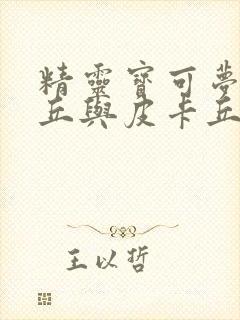 精靈寶可夢
丘與皮卡丘
王以哲